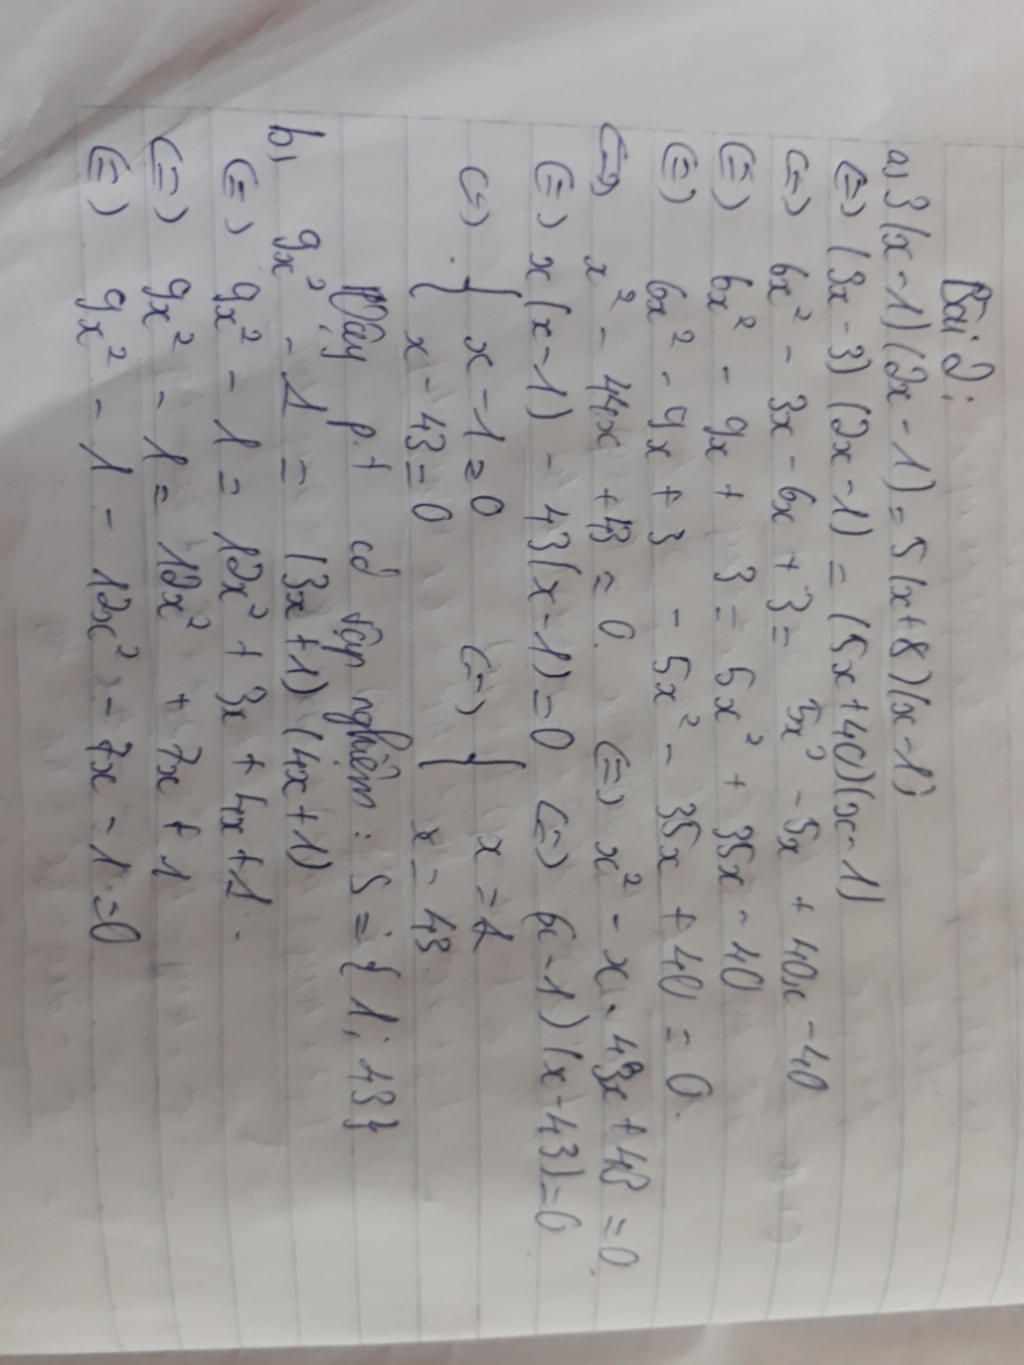 Bài 2:
a) 3(x-1)(2x-1) = 5(x+8)(x-1);
(=) (3x-3)(2x-1) = (5x+40)(x-1)
(=) 6x² - 3x - 6x + 3 = 5x² - 5x + 40x - 40
(=) 6x² - 9x + 3 = 5x² + 35x - 40
(=) 6x² - 9x + 3 - 5x² - 35x + 40 = 0.
(=) x² - 44x + 43 = 0. (=) x² - x - 43x + 43 = 0.
(=) x(x-1) - 43(x-1) = 0 (=) (x-1)(x-43) = 0
(=) { x - 1 = 0 (=) { x = 1
x - 43 = 0 x = 43.
Vậy pt có tập nghiệm: S = { 1; 43}
b) 9x² - 1 = (3x+1)(4x+1)
(=) 9x² - 1 = 12x² + 3x + 4x + 1.
(=) 9x² - 1 = 12x² + 7x + 1
(=) 9x² - 1 - 12x² - 7x - 1 = 0